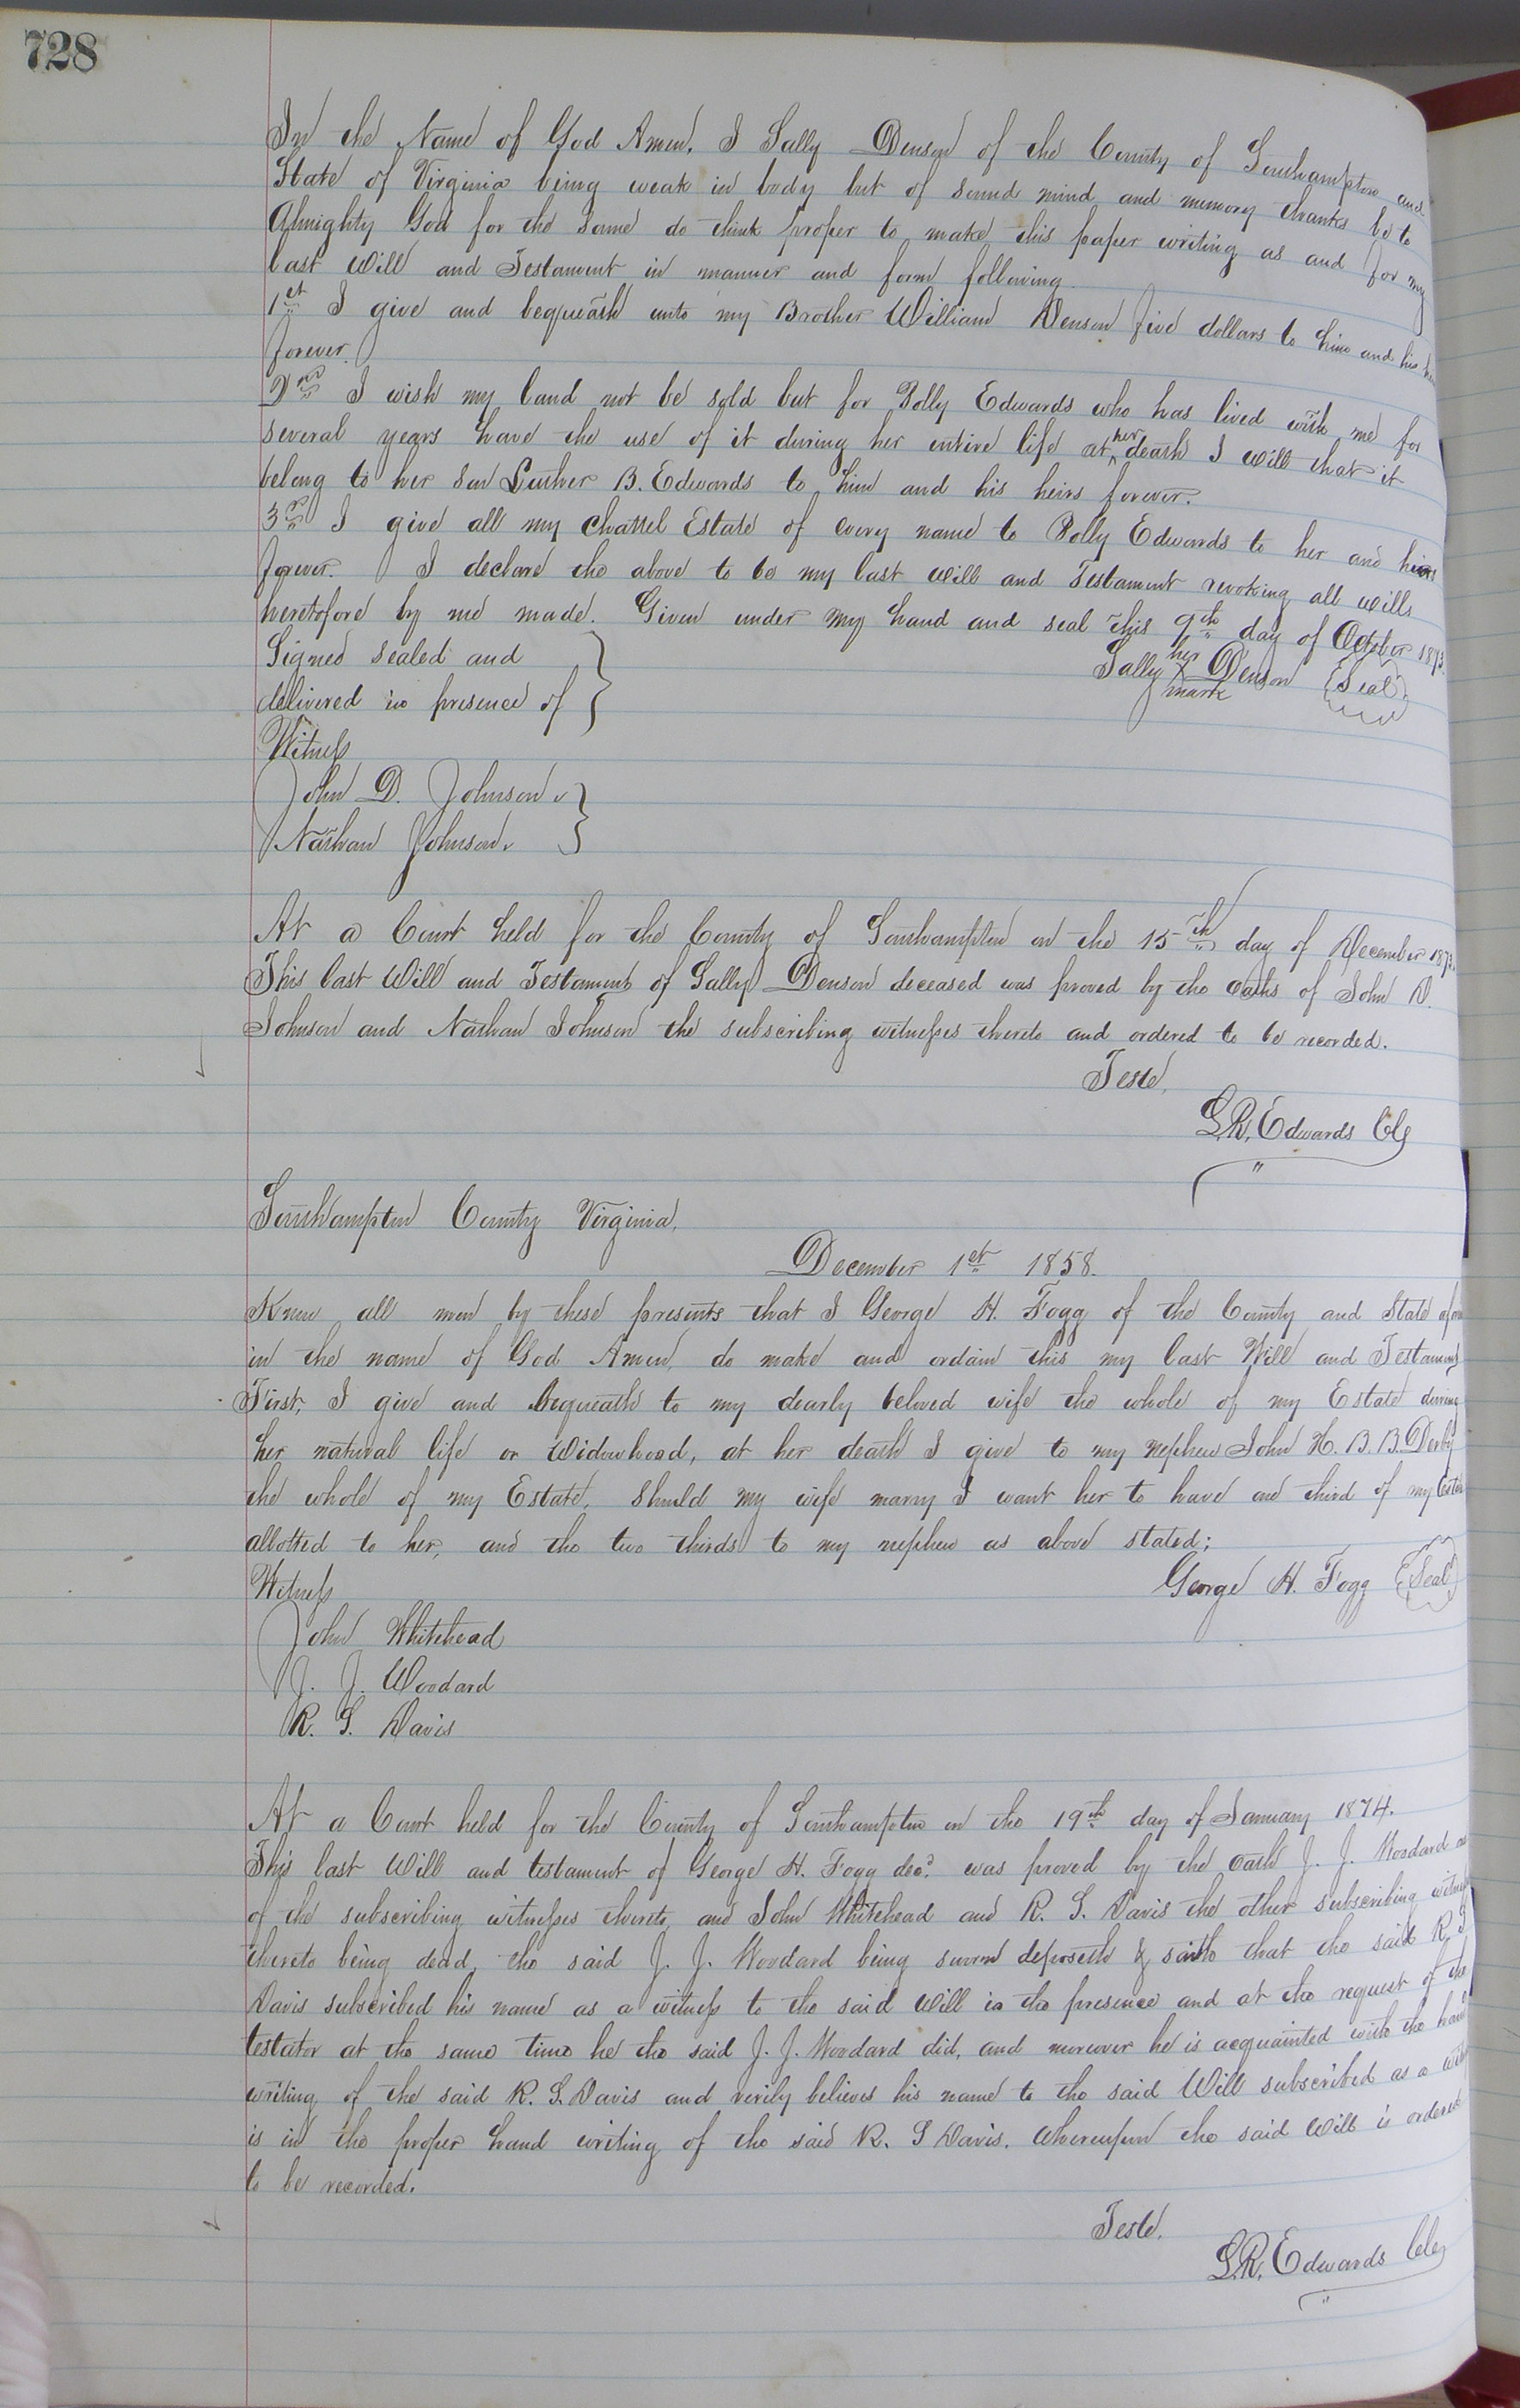 728
In the Name of God Amen. I Sally Denson of the County of Southampton and
State of Virginia being weak in body but of sound mind and memory thanks be to
Almighty God for the same do think proper to make this paper writing as and for my
last Will and Testament in manner and form following.
1st I give and bequeath unto my Brother William Denson five dollars to him and his
forever.
2nd I wish my land not be sold but for Polly Edwards who has lived with me for
several years have the use of it during her entire life at her death I will that it
belong to her Son Luther B. Edwards to him and his heirs forever.
3rd I give all my Chattel Estate of every name to Polly Edwards to her and heirs
forever. I declare the above to be my last will and Testament revoking all wills
heretofore by me made. Given under my hand and seal this 9th day of October 1873.
Signed sealed and
delivered in presence of
Sally her X mark Denson (Seal)
Witness
John D. Johnson
Nathan Johnson
At a Court held for the County of Southampton on the 15th day of December 1873.
This last Will and Testament of Sally Denson deceased was proved by the oaths of John D.
Johnson and Nathan Johnson the subscribing witnesses thereto and ordered to be recorded.
Teste,
L.R. Edwards Clk
Southampton County Virginia,
December 1st 1858.
Know all men by these presents that I George H. Fogg of the County and State
in the name of God Amen, do make and ordain this my last Will and Testament
First, I give and bequeath to my dearly beloved wife the whole of my Estate during
her natural life or Widowhood, at her death I give to my nephew John H. B. B. Derby
the whole of my Estate. Should my wife marry I want her to have one third of my
allotted to her, and the two thirds to my nephew as above stated;
George H. Fogg (Seal)
Witness
John Whitehead
J. J. Woodard
R. S. Davis
At a Court held for the County of Southampton on the 19th day of January 1874.
This last Will and testament of George H. Fogg decd. was proved by the oath J. J. Woodard
of the subscribing witnesses thereto, and John Whitehead and R. S. Davis the other subscribing
thereto being dead, the said J. J. Woodard being sworn deposeth & saith that the said R. S.
Davis subscribed his name as a witness to the said Will in the presence and at the request of the
testator at the same time he the said J. J. Woodard did, and moreover he is acquainted with the hand
writing of the said R. S. Davis and verily believes his name to the said Will subscribed as a
is in the proper hand writing of the said R. S Davis. Whereupon the said Will is ordered
to be recorded.
Teste.
L.R. Edwards Clk